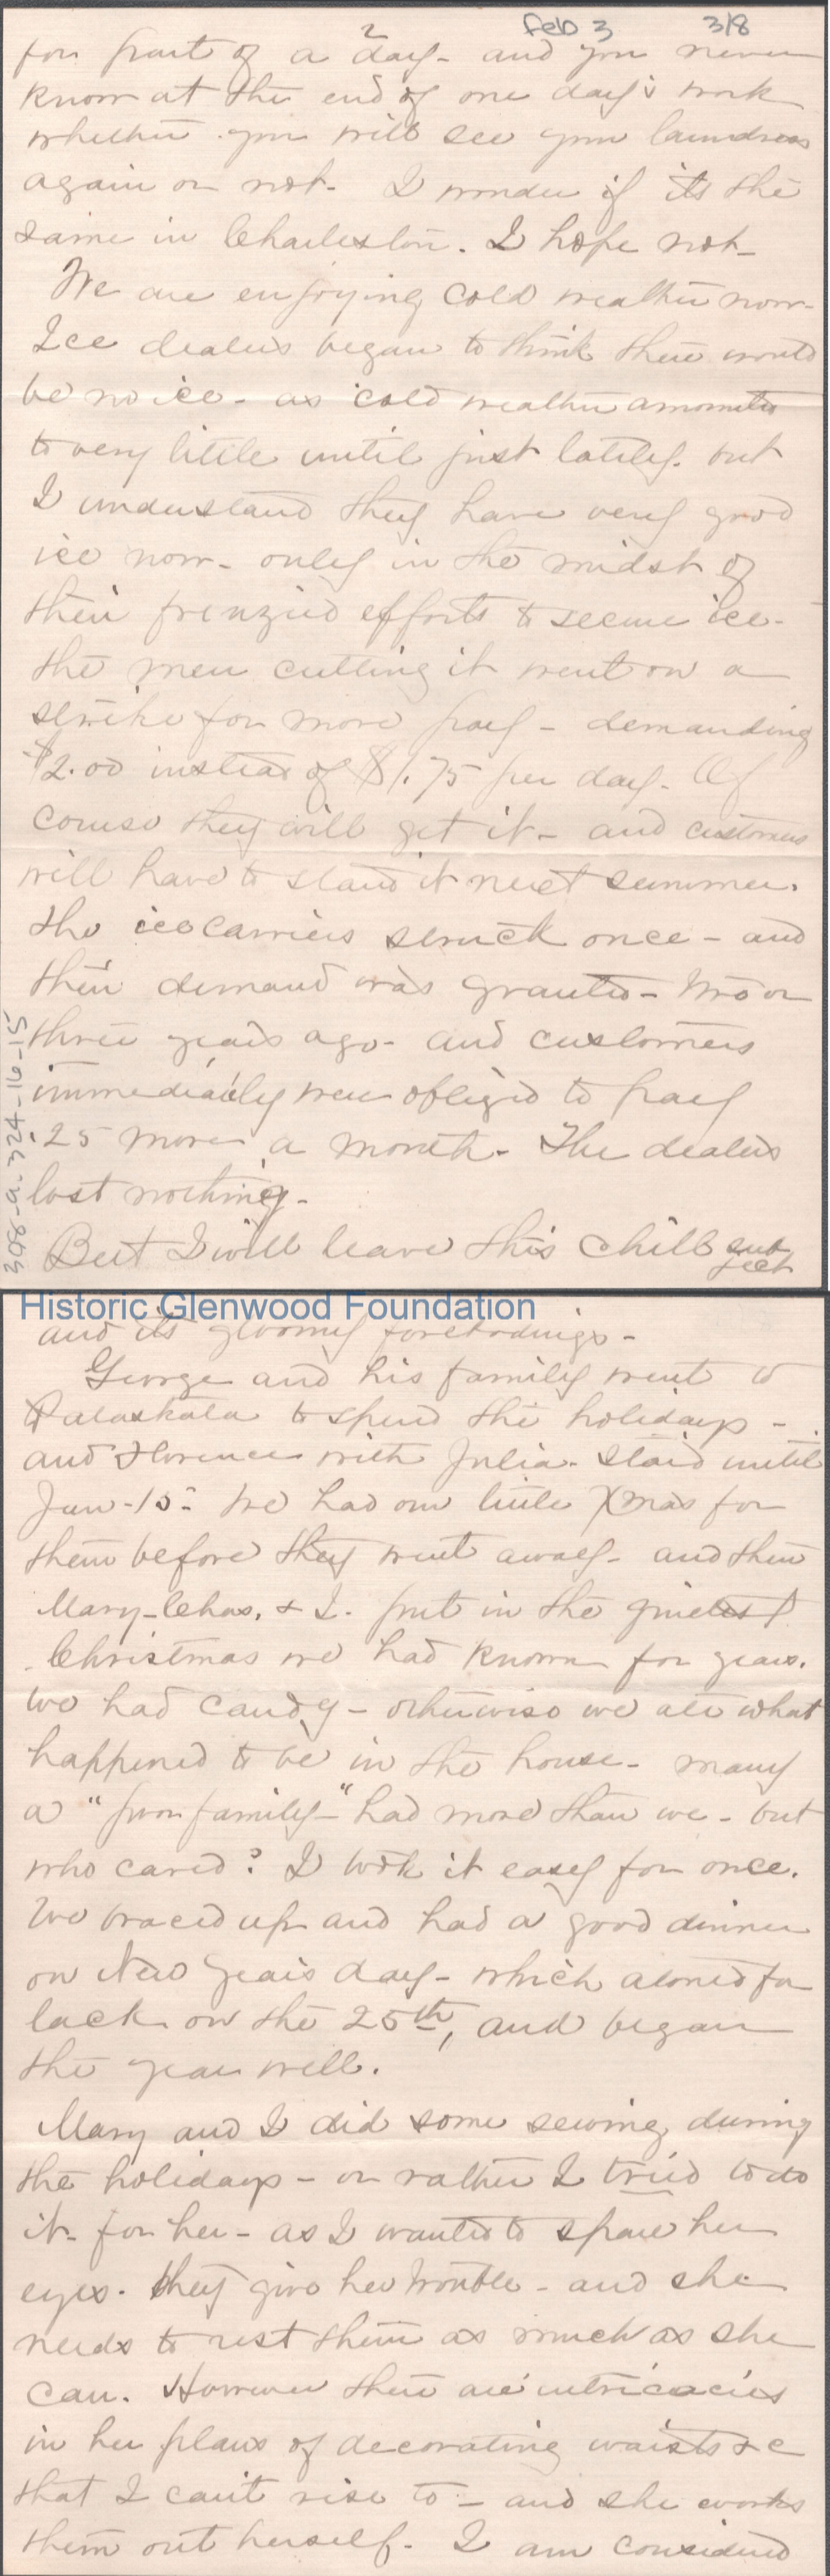 Feb 3 3/8
2
for part of a day - and you never
know at the end of one day's work
whether you will see your laundress
again or not - I wonder if its the
same in Charleston. I hope not -
We are enjoying cold weather now -
Ice dealers began to think there would
be no ice - as cold weather amounted
to very little until just lately - but
I understand they have very good
ice now - only in the midst of
their frenzied efforts to secure ice -
the men cutting it went on a
strike for more pay - demanding
$2.00 instead of $1.75 per day - Of
course they will get it - and customers
will have to stand it next summer.
The ice carriers struck once - and
their demand was granted - two or
three years ago - and customers
immediately were obliged to pay
.25 more a month - The dealers
lost nothing -
But I will leave this chill subject
308-a-324-16-15
Historic Glenwood Foundation
and its gloomy forebodings -
George and his family went to
Pataskala to spend the holidays -
and Florence with Julia - staid until
Jan - 10 - We had our little Xmas for
them before they went away - and then
Mary - Chas. & I - put in the quietest
Christmas we had known for years.
We had candy - otherwise we ate what
happened to be in the house - many
a "poor family" had more than we - but
who cared? I took it easy for once.
We braced up and had a good dinner
on New Years day - which atoned for
lack on the 25th, and began
the year well.
Mary and I did some sewing during
the holidays - or rather I tried to do
it - for her - as I wanted to spare her
eyes. They give her trouble - and she
needs to rest them as much as she
can. However there are intricacies
in her plans of decorating waists &c
that I can't rise to - and she works
them out herself - I am considered